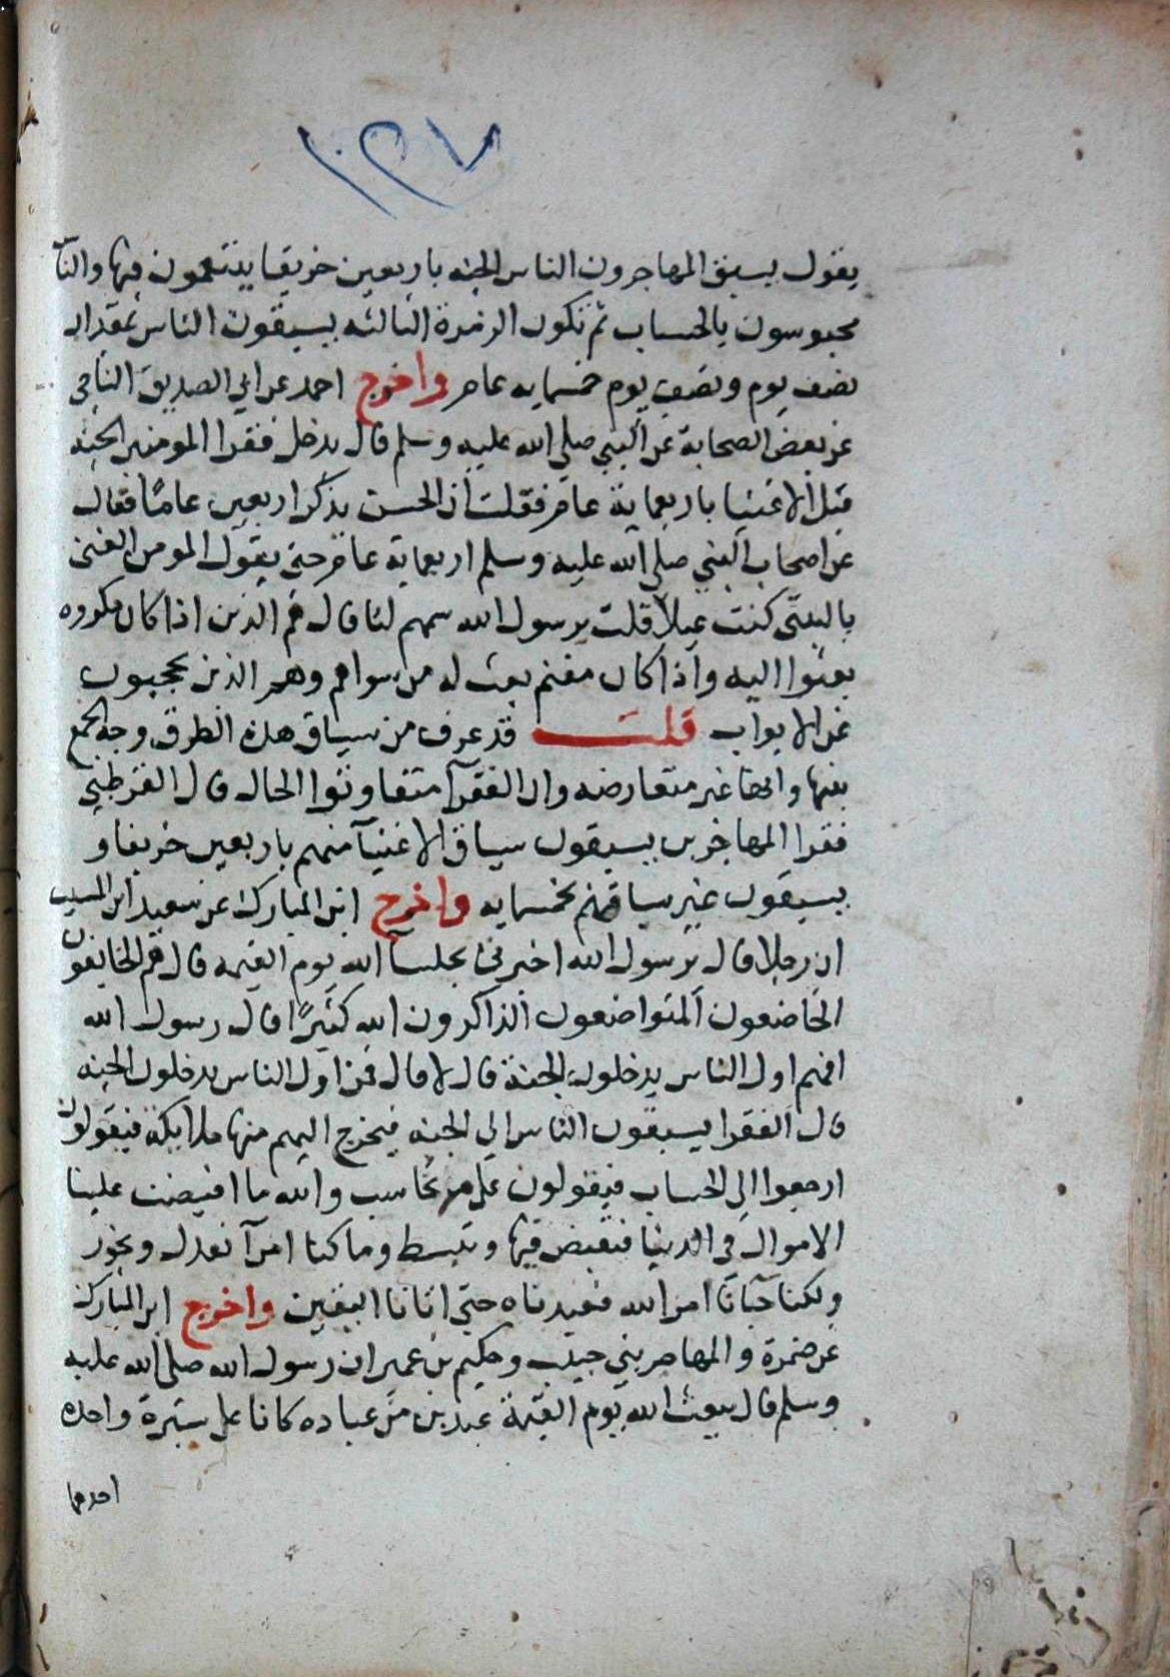 ١٣٧
يقول يسبق المهاجرون الناس الجنه باربعين خريفا يتنعمون فيها والناس
محبوسون بالحساب ثم تكون الزمرة الثالثه يسبقون الناس بمقدار
نصف يوم ونصف يوم خمسمايه عام واخرج احمد عن ابي الصديق الناجي
عن بعض الصحابة عن النبي صلى الله عليه وسلم قال يدخل فقرا المومنين الجنه
قبل الاغنيا باربعماية عام فقلت ان الحسن يذكر اربعين عامًا فقال
عن اصحاب النبي صلى الله عليه وسلم اربعماية عام حتى يقول المومن الغني
ياليتني كنت عيلا قلت يرسول الله سمهم لنا قال هم الذين اذا كان مكروه
بعثوا اليه واذا كان مغنم بعث له من سواهم وهم الذين يحجبون
عن الابواب قلت قد عرف من سياق هذه الطرق وجه الجمع
بينها وانها غير متعارضه وان الفقرآ متفاوتوا الحال قال القرطبي
فقرا المهاجرين يسبقون سباق الاغنيآ منهم باربعين خريفا و
يسبقون غير سباقهم بخمسمايه واخرج ابن المبارك عن سعيد ابن المسيب
ان رجلا قال يرسول الله اخبرني بجلسآ الله يوم القيمه قال هم الخايفون
الخاضعون المتواضعون الذاكرون الله كثيرًا قال رسول الله
افهم اول الناس يدخلون الجنة قال لا قال فمن اول الناس يدخلون الجنه
قال الفقرا يسبقون الناس الى الجنه فيخرج اليهم منها ملايكة فيقولون
ارجعوا الى الحساب فيقولون على م نحاسب والله ما افيضت علينا
الاموال في الدنيا فنقبض فيها ونبسط وما كنا امرآ نعدل ونجور
ولكنا جآنا امر الله فعبدناه حتى اتانا اليقين واخرج ابن المبارك
عن ضمرة والمهاصر بني حبيب وحكيم بن عمير ان رسول الله صلى الله عليه
وسلم قال يبعث الله يوم القيمة عبدين من عباده كانا على سيرة واحده
احدهما